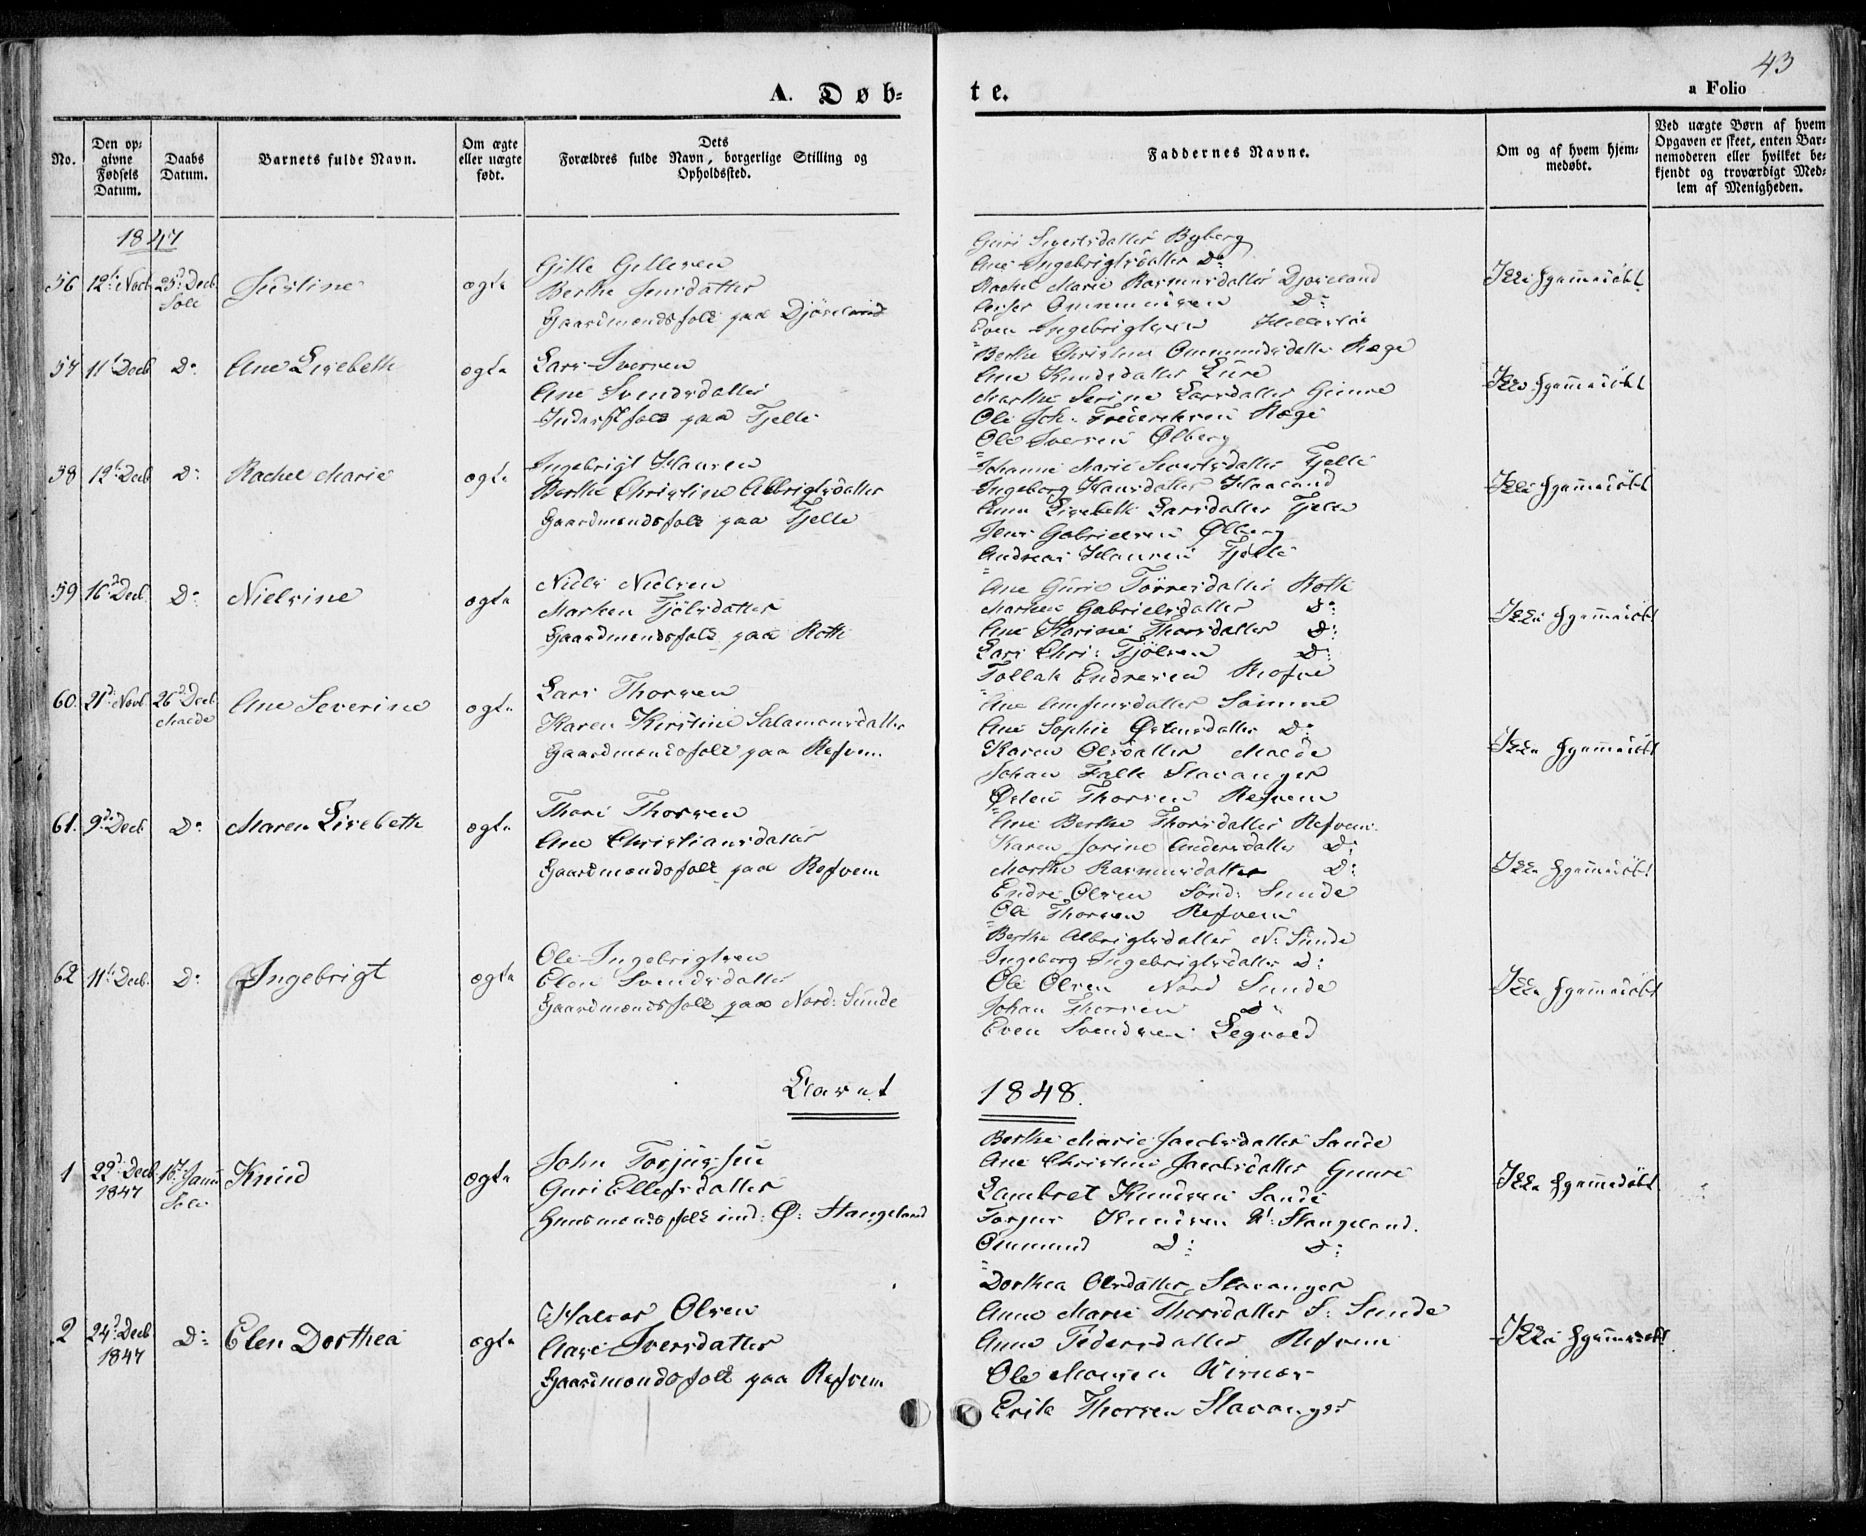 43
A. Døb-
te.
a Folio
No.
Den op-
givne
Fødsels
Datum.
Daabs
Datum.
Barnets fulde Navn.
Om ægte
eller uægte
født.
Dets
Forældres fulde Navn, borgerlige Stilling og
Opholdssted.
Faddernes Navne.
Om og af hvem hjem-
medøbt.
Ved uægte Børn af hvem
Opgaven er skeet, enten Bar-
nemoderen eller hvilket be-
kjendt og troværdigt Med-
lem af Menigheden.
1847
56 12t Novb 25d Decb Sole
ægte
Gitle Gitlesen
Berthe Jensdatter
Gaardmandsfolk paa
Guri Sivertsdatter Byberg
Ane Ingebrigtsdatter Do
Rachel Marie Rasmusdatter
Ommundsen Do
Even Ingebrigtsen
Ikke hjemmedøbt
57 11t Decb Do Ane Lisebeth ægte
Lars Iversen
Ane Svendsdatter
Inderstfolk paa Tjelle
Berthe Christine Ommundsdatter Ræge
Ane Knudsdatter
Marthe Serine Larsdatter Gimre
Ole Joh: Frederiksen Ræge
Ole Iversen Ølberg
Ikke hjemmedøbt
58 12t Decb Do Rachel Marie ægte
Ingebrigt Hansen
Berthe Christine Albrigtsdatter
Gaardmandsfolk paa Tjelle
Johanne Marie Sivertsdatter Tjelle
Ingeborg Hansdatter Haaland
Anne Lisebeth Larsdatter Tjelle
Jens Gabrielsen Ølberg
Andreas Hansen Tjelle
Ikke hjemmedøbt
59 16d Decb Do Nielsine ægte
Niels Nielsen
Marken Tjølsdatter
Gaardmandsfolk paa Roth
Ane Gurie Tørresdatter Roth
Marken Gabrielsdatter Do
Ane Karine Thorsdatter Do
Lars Chri: Tjølsen Do
Tollak Endresen
Ikke hjemmedøbt
60. 21d Novb 26d Decb Malde Ane Severine ægte
Lars Thorsen
Karen Kirstine Salamonsdatter
Gaardmandsfolk paa Refvem
Ane Amfinsdatter Sømme
Ane Sophie Østensdatter Do
Karen Olsdatter Malde
Johan Falk Stavanger
Østen Thorsen Refvem
Ikke hjemmedøbt
61. 9d Decb Do Maren Lisebeth ægte
Thore Thorsen
Ane Christiansdatter
Gaardmandsfolk paa Refvem
Ane Berthe Thorsdatter Refvem.
Karen Jorine Andersdatter Do
Marthe Rasmusdatter Do
Endre Olsen Sønd: Sunde
Ole Thorsen Refvem
Ikke hjemmedøbt
62 11t Decb. Do Ingebrigt ægte
Ole Ingebrigtsen
Elen Svendsdatter
Gaardmandsfolk paa Nord: Sunde
Berthe Albrigtsdatter N: Sunde
Ingeborg Ingebrigtsdatter Do
Ole Olsen Nord Sunde
Johan Thorsen Do
Even Svendsen
Ikke hjemmedøbt
Aaret
1848.
1 22d Decb 1847 16d Janu Sole Knud ægte
John Torjussen
Guri Ellefsdatter
Huusmandsfolk ind: Ø: Stangeland
Berthe Marie Jacobsdatter Sande
Ane Christine Jacobsdatter Gimre
Lambret Knudsen Sande
Torjus Knudsen Stangeland.
Ommund Do Do
Ikke hjemmedøbt
2 24d Decb 1847 Do Elen Dorthea ægte
Halvor Olsen
Aase Iversdatter
Gaardmandsfolk paa Refvem
Dorthea Olsdatter Stavanger
Anne Marie Thorsdatter S: Sunde
Anne Pedersdatter Refvem
Ole Monsen
Erik Thorsen Stavanger
Ikke hjemmedøbt